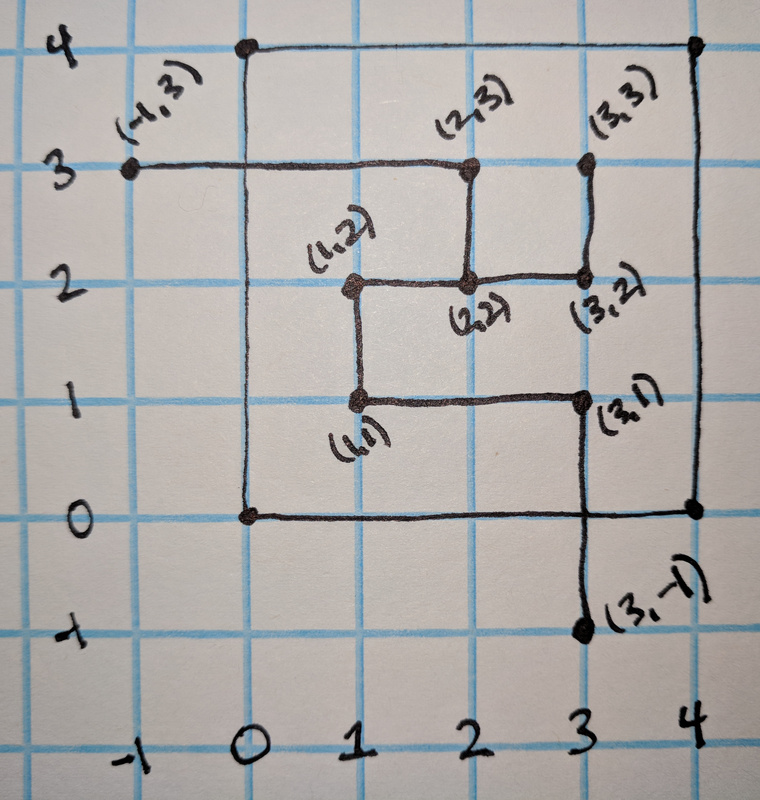 4
(-1,3)
(2,3)
(3,3)
3
(1,2)
2
(2,2)
(3,2)
1
(1,1)
(3,1)
0
(3,-1)
-1
-1 0 1 2 3 4